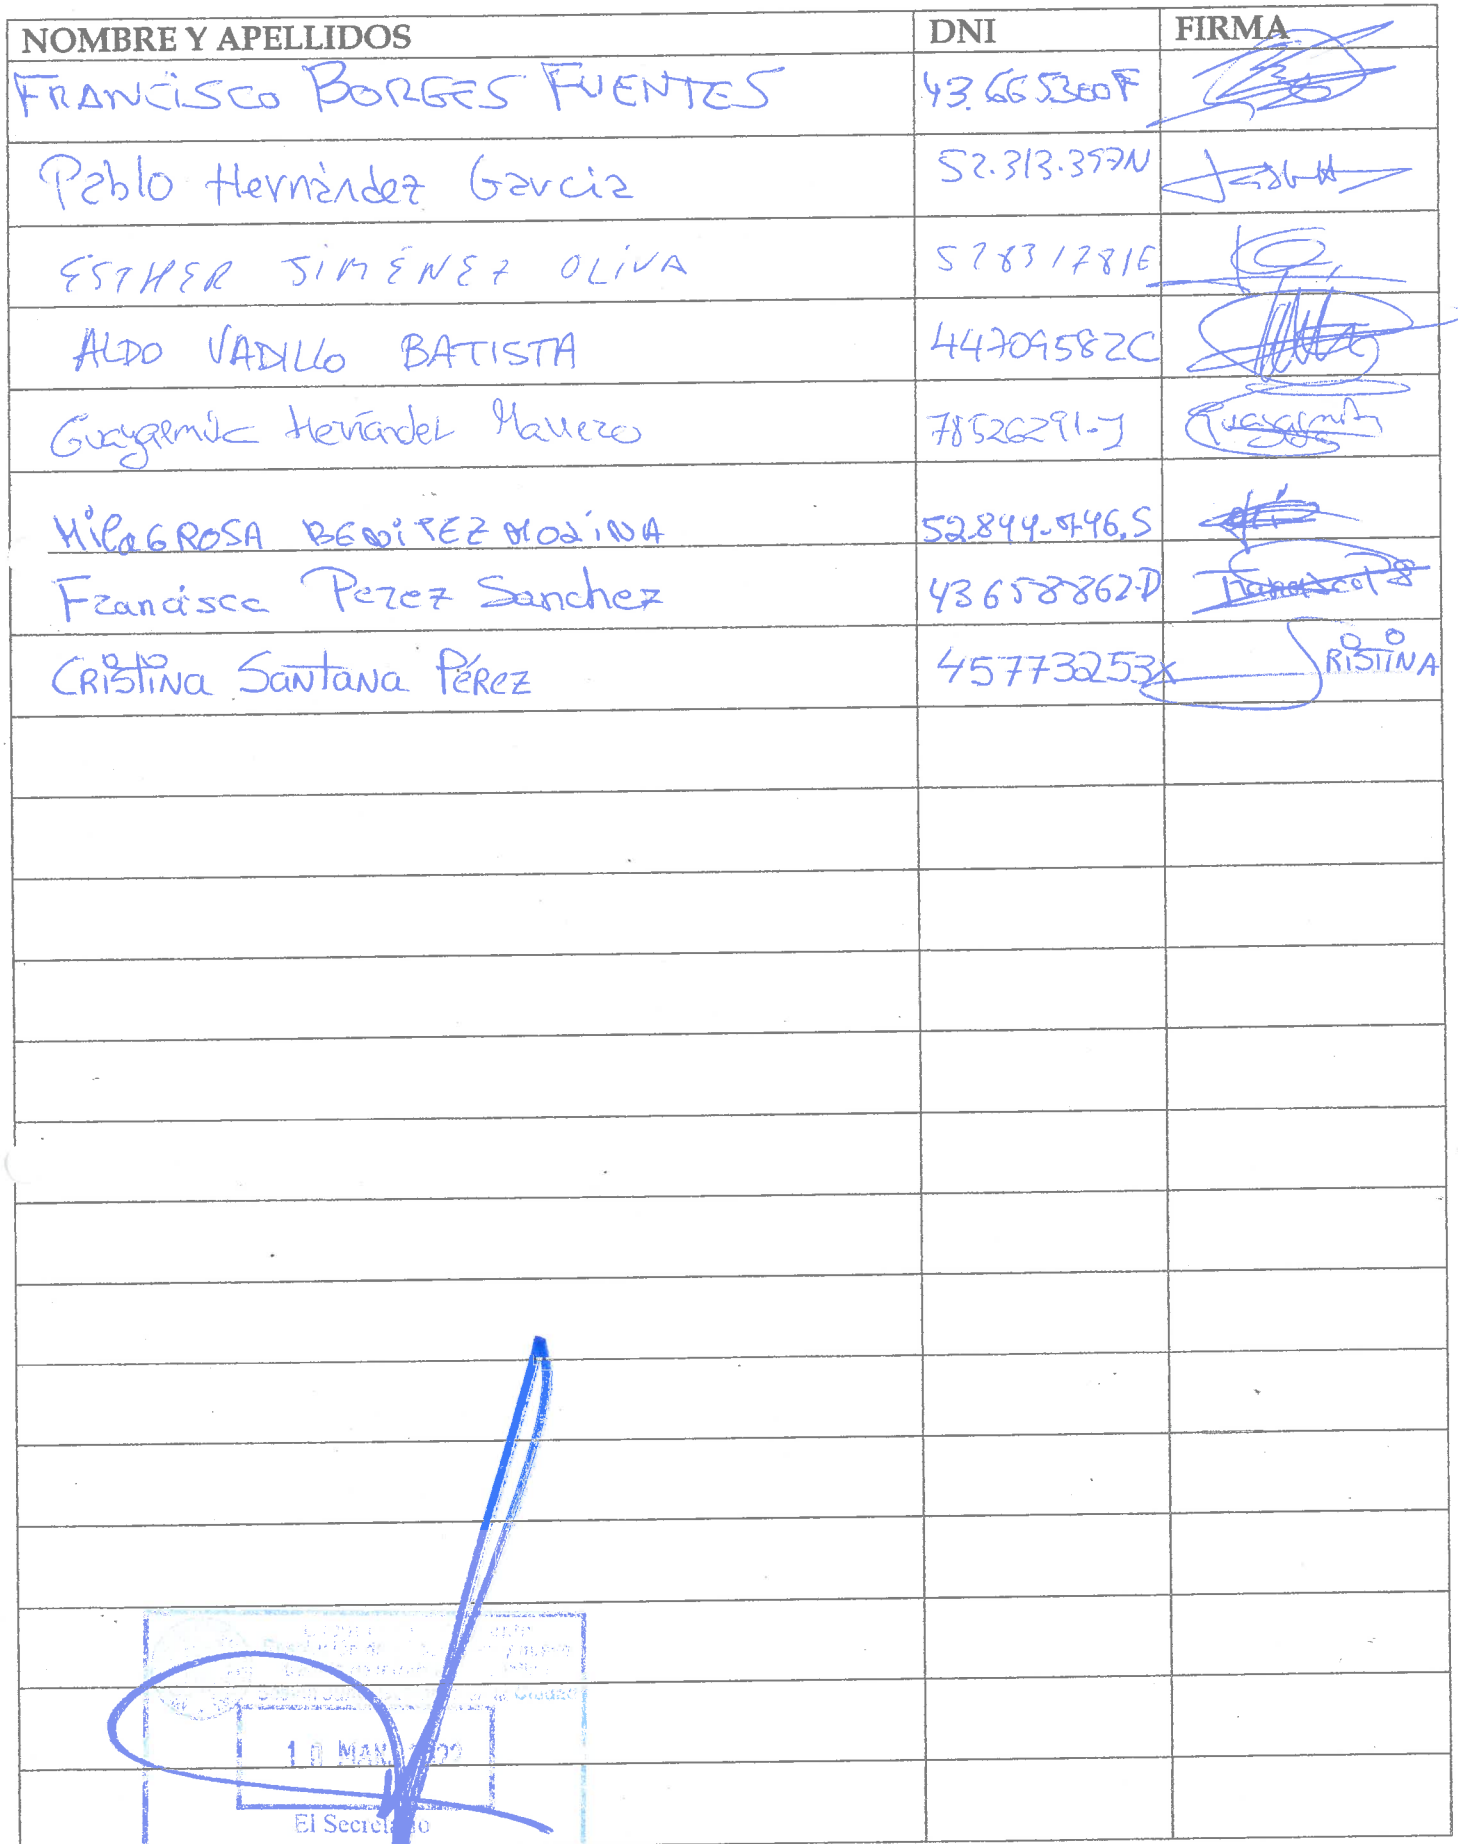 NOMBRE Y APELLIDOS DNI FIRMA
FRANCISCO BORGES FUENTES 43.665300F
Pablo Hernández García 52.313.397N
ESTHER JIMÉNEZ OLIVA 52831781E
ALDO VADILLO BATISTA 44709582C
Hernández 78526291-J
MilaGROSA BENiTEZ MOLiNA 52.844.746.S
Francisca Perez Sanchez 43658862-D
CRiSTiNa SaNTaNa PéRez 45773253X RiSTiNA
El Secretario